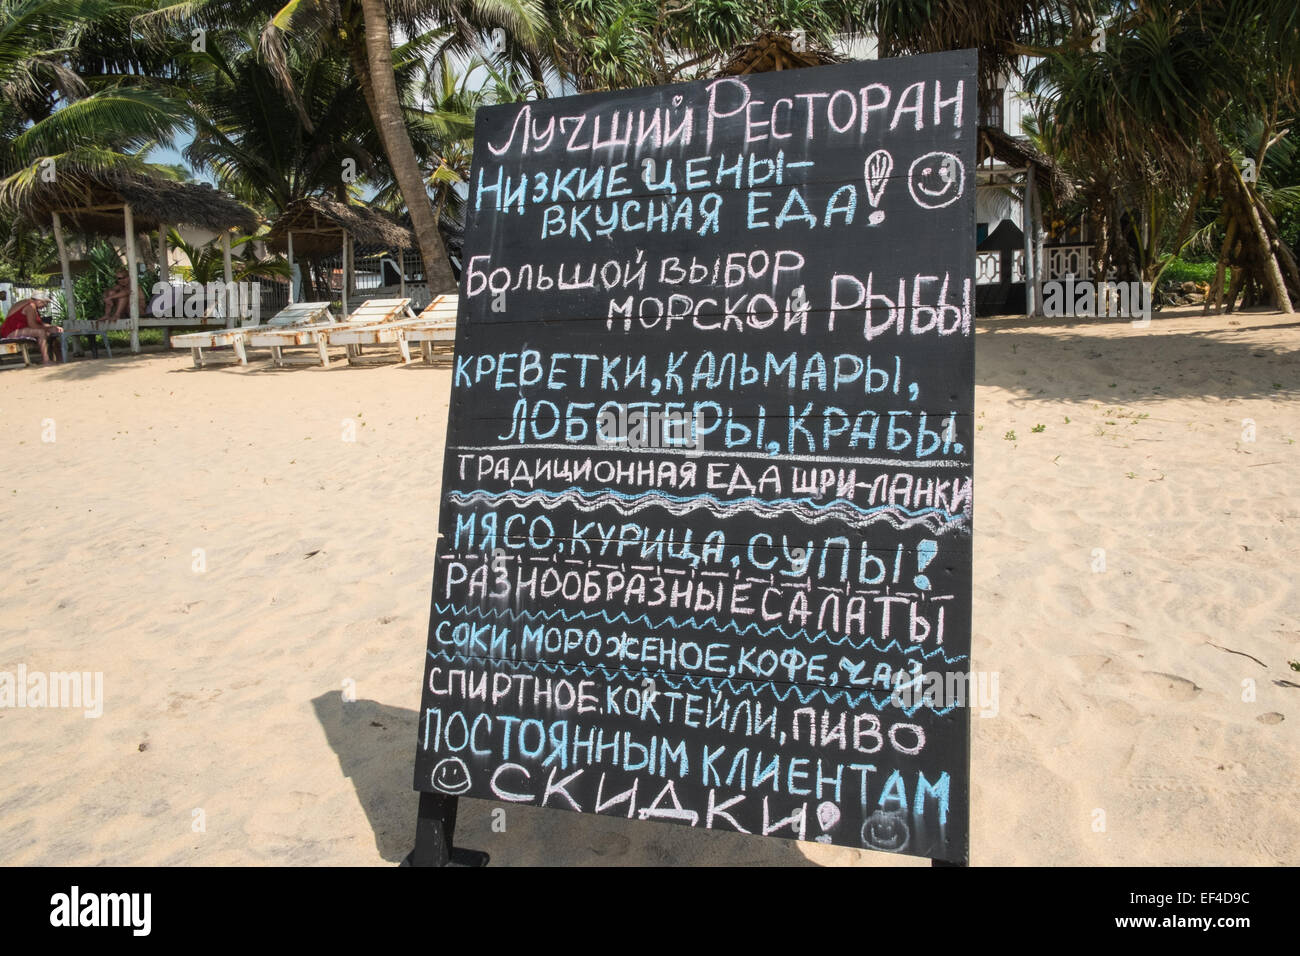 Лучший Ресторан
Низкие цены-
вкусная еда!
Большой выбор
морской рыбы
креветки, кальмары,
лобстеры, крабы.
традиционная еда Шри-Ланки
мясо, курица, супы!
разнообразные салаты
соки, мороженое, кофе, чай
спиртное, коктейли, пиво
постоянным клиентам
скидки!
alamy
Image ID: EF4D9C
www.alamy.com
alamy stock photo